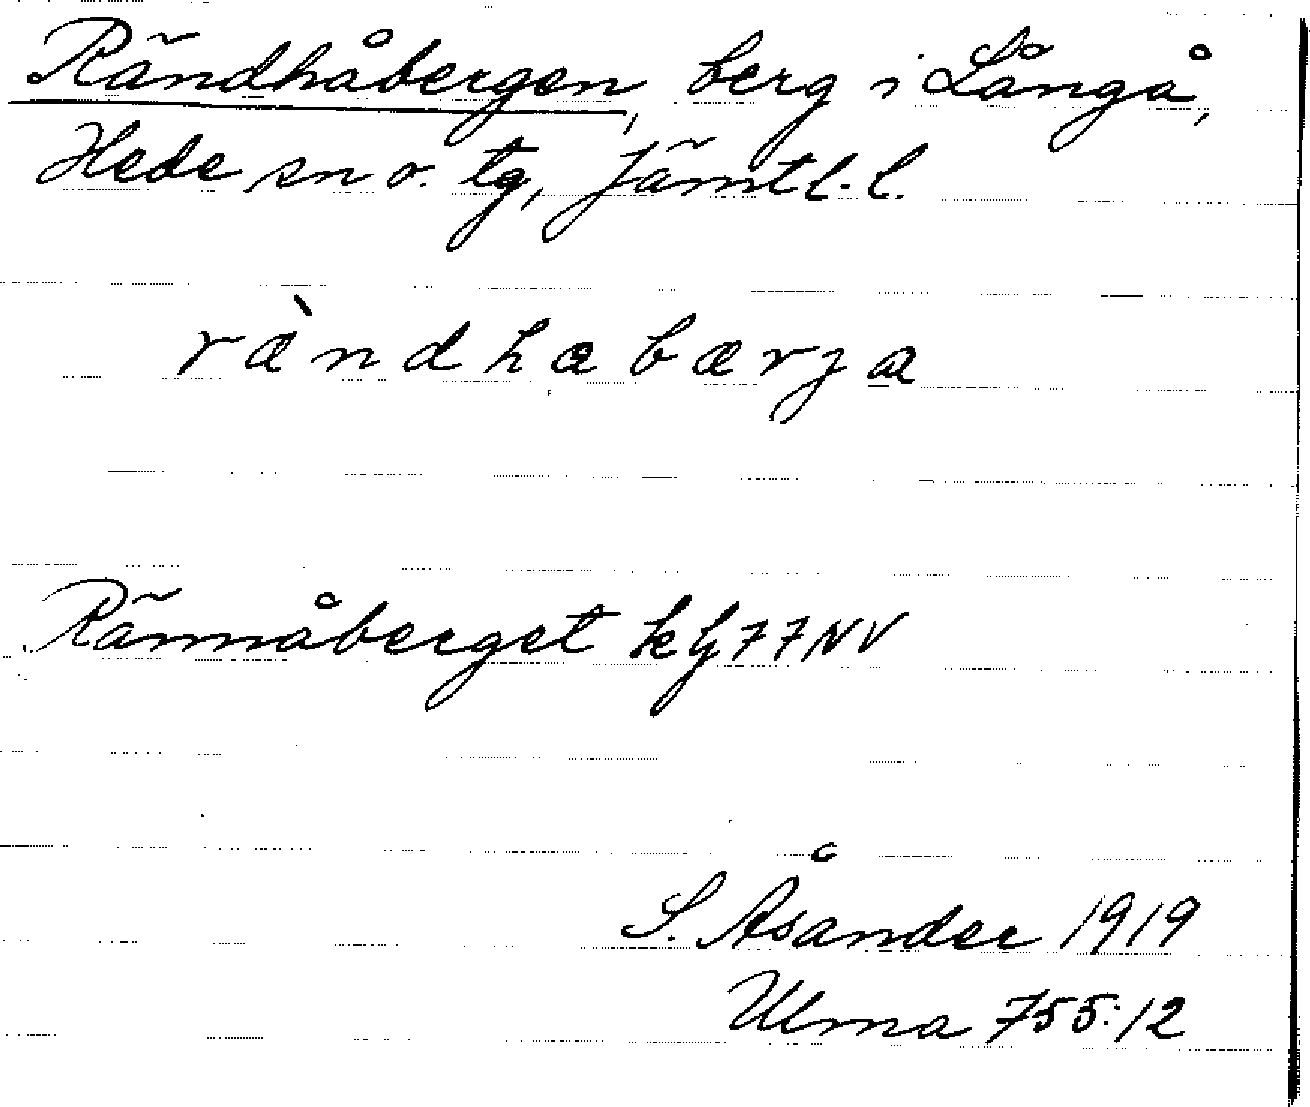 Rändhåbergen, berg i Långå,
Hede sn o. tg, Jämtl. l.
rænd hæbærja
Rännåberget kg 77NV
S. Åsander 1919
Ulma 755:12